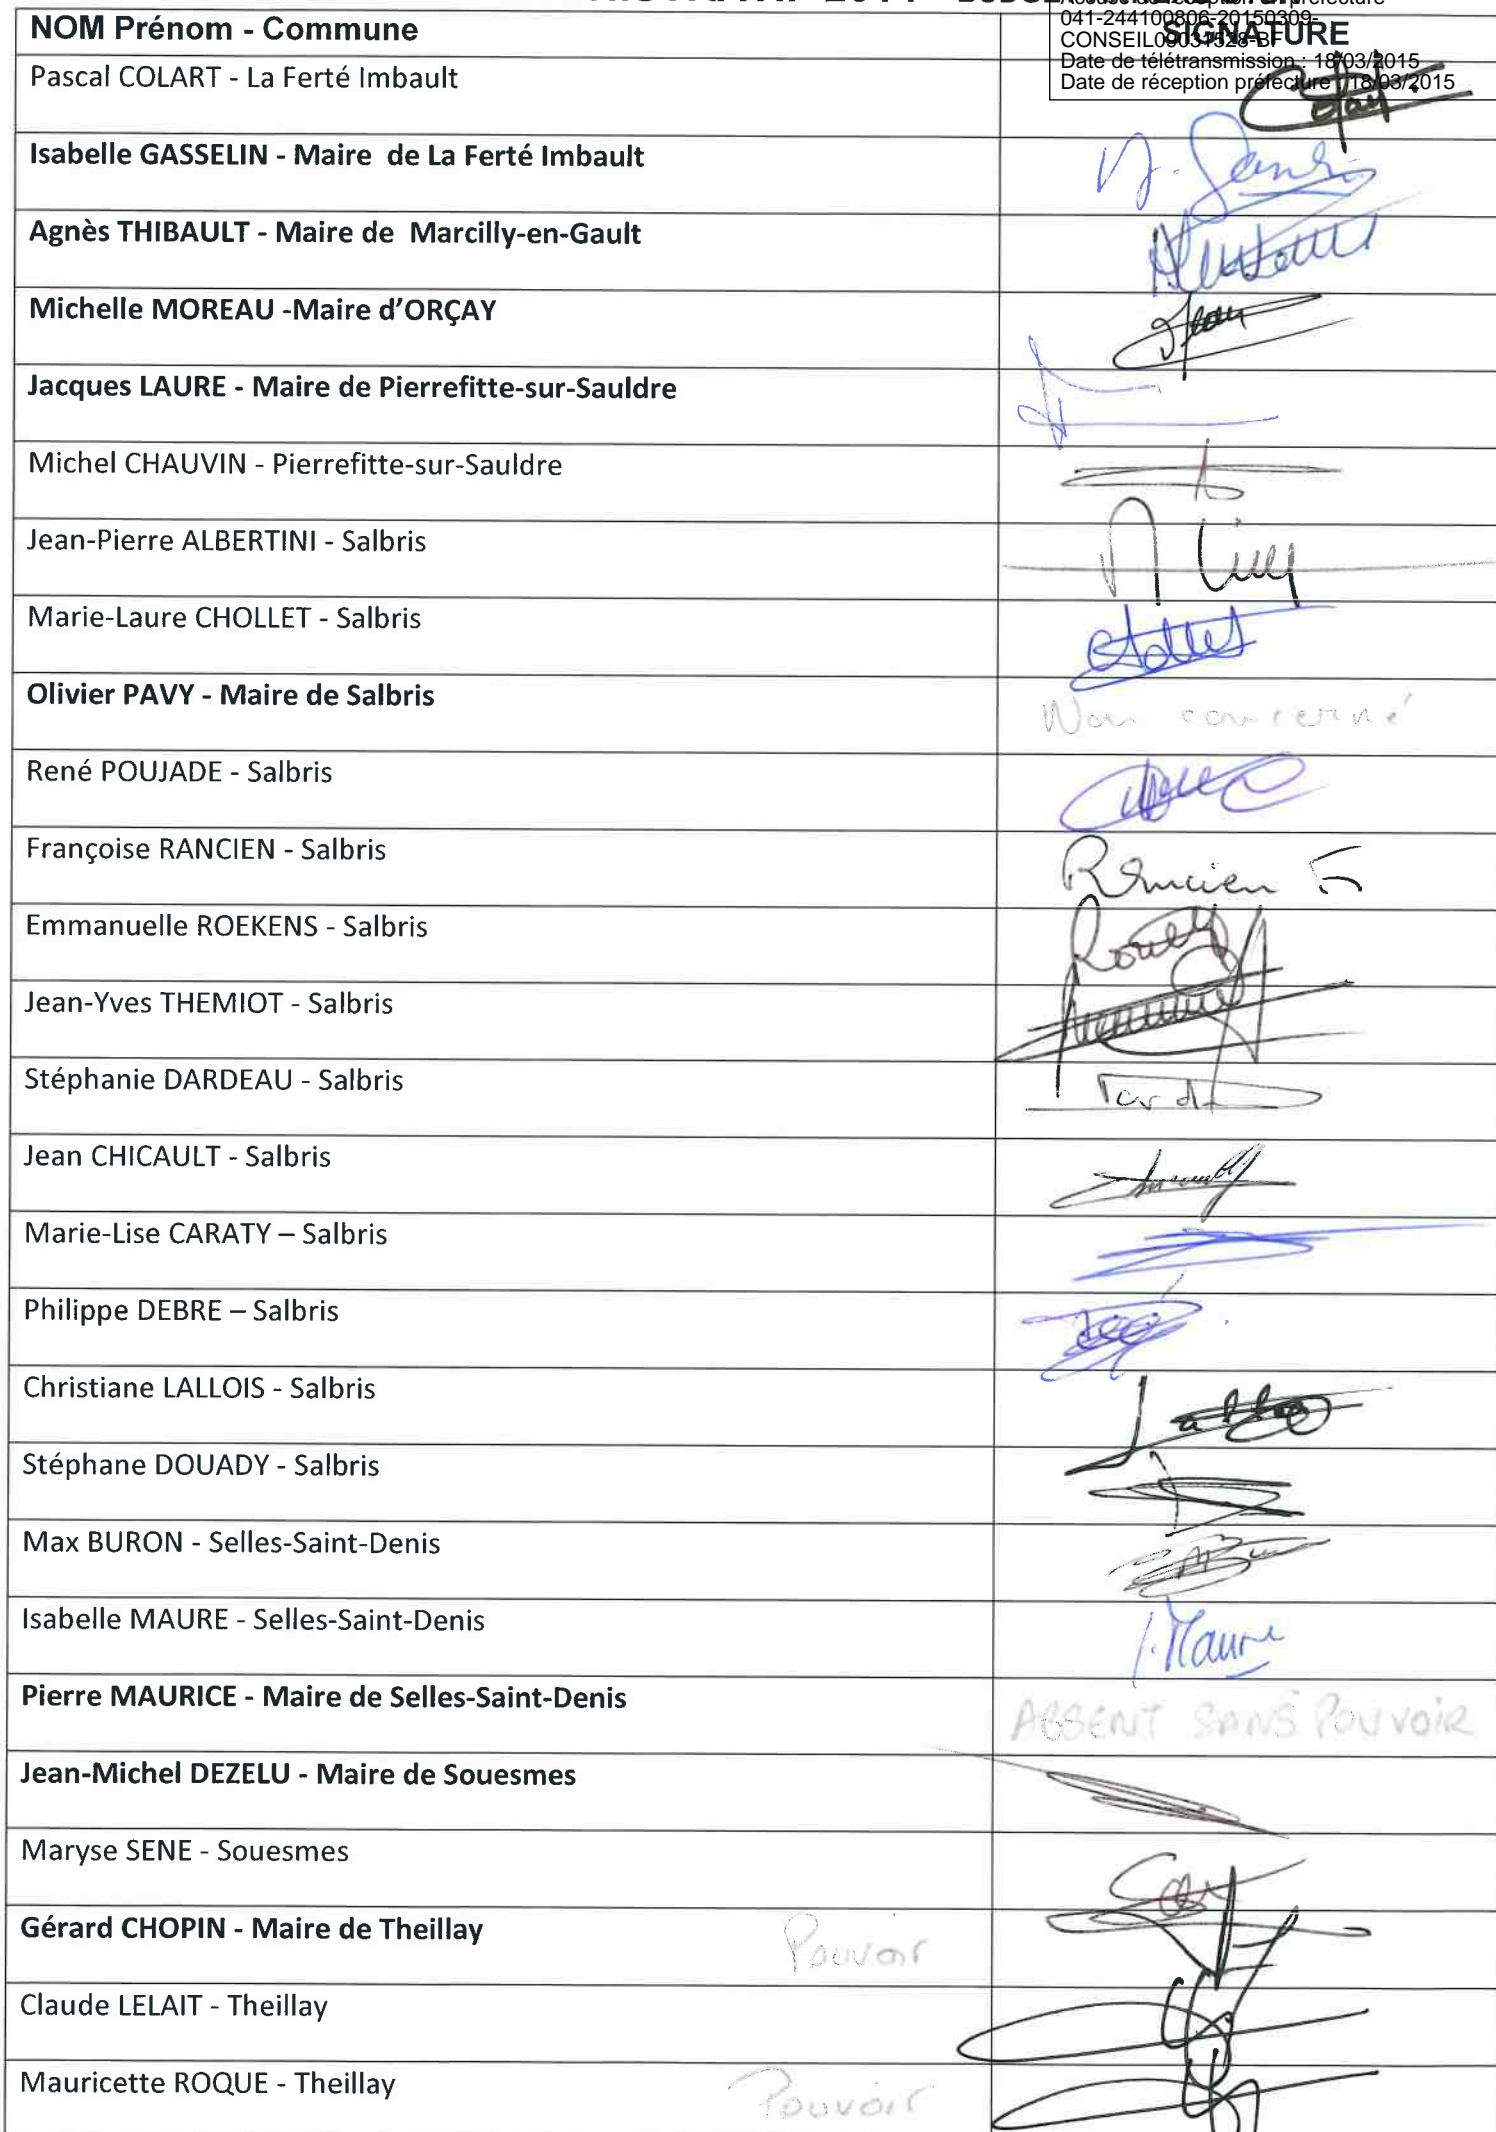 NOM Prénom - Commune
041-244100806-20150309-
CONSEIL09031528-BF
SIGNATURE
Date de télétransmission : 18/03/2015
Date de réception préfecture : 18/03/2015
Pascal COLART - La Ferté Imbault
Isabelle GASSELIN - Maire de La Ferté Imbault
Agnès THIBAULT - Maire de Marcilly-en-Gault
Michelle MOREAU -Maire d'ORÇAY
Jacques LAURE - Maire de Pierrefitte-sur-Sauldre
Michel CHAUVIN - Pierrefitte-sur-Sauldre
Jean-Pierre ALBERTINI - Salbris
Marie-Laure CHOLLET - Salbris
Olivier PAVY - Maire de Salbris
Non concerné
René POUJADE - Salbris
Françoise RANCIEN - Salbris
Rancien F
Emmanuelle ROEKENS - Salbris
Jean-Yves THEMIOT - Salbris
Stéphanie DARDEAU - Salbris
Jean CHICAULT - Salbris
Marie-Lise CARATY – Salbris
Philippe DEBRE – Salbris
Christiane LALLOIS - Salbris
Stéphane DOUADY - Salbris
Max BURON - Selles-Saint-Denis
Isabelle MAURE - Selles-Saint-Denis
I. Maure
Pierre MAURICE - Maire de Selles-Saint-Denis
ABSENT SANS POUVOIR
Jean-Michel DEZELU - Maire de Souesmes
Maryse SENE - Souesmes
Gérard CHOPIN - Maire de Theillay
Pouvoir
Claude LELAIT - Theillay
Mauricette ROQUE - Theillay
Pouvoir